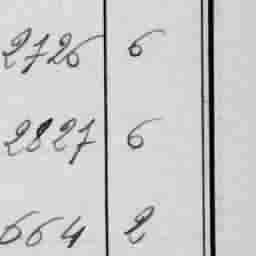 2726 6
2827 6
664 2